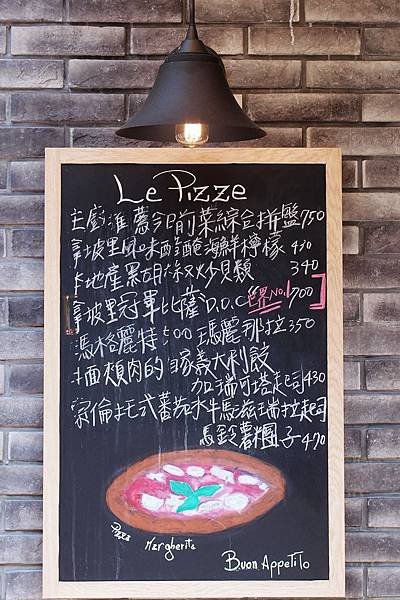 Le Pizze
主廚推薦今日前菜綜合拼盤750
拿坡里風味醋醃海鮮檸檬 430
卡地產黑胡椒炒貝類 340
拿坡里冠軍比薩D.O.C 世界No.1 700
瑪格麗特500 瑪麗那拉350
牛面頰肉的自家義大利餃
加瑞可塔起司430
索倫托式蕃茄水牛馬茲瑞拉起司
馬鈴薯糰子470
Pizza Margherita
Buon Appetito